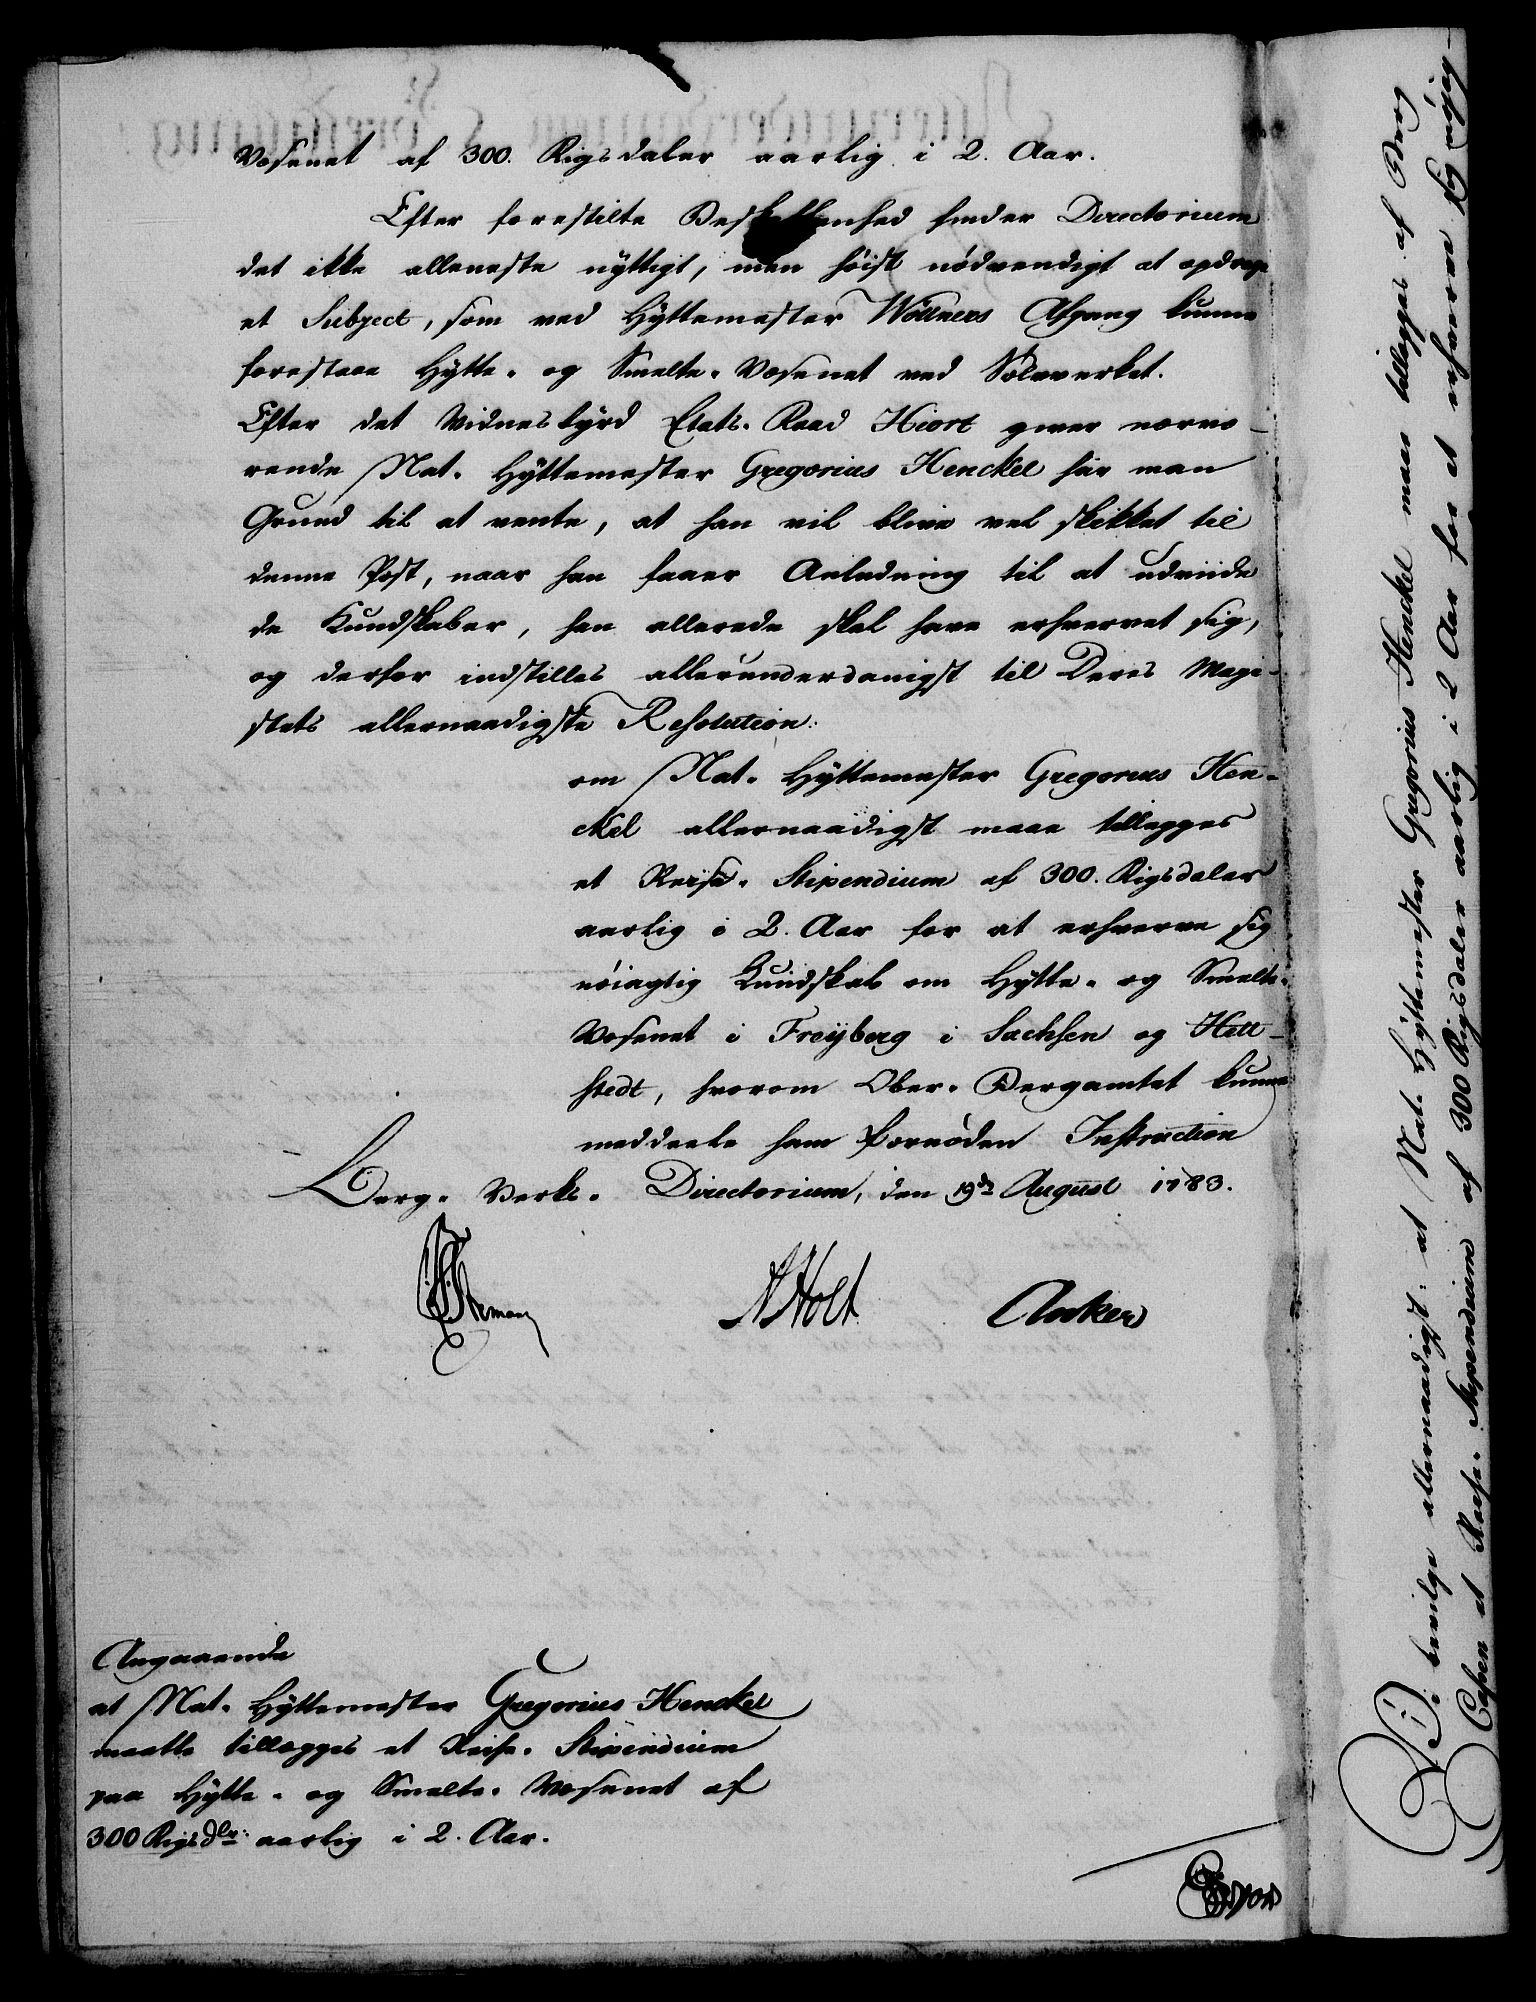 Væsenet af 300. Rigsdaler aarlig i 2. Aar.
Efter forestilte Beskaffenhed finder Directorium
det ikke alleneste nÿttigt, men höist nödvendigt at opdrage
et Subject, som ved Hÿttemester Wöllners Afgang kunne
forestaae Hÿtte- og Smelte-Væsenet ved Sölvverket.
Efter det Vidnesbÿrd Etats-Raad Hiort giver nærvæ-
rende Nat. Hÿttemester Gregorius Henckel har man
Grund til at vente, at han vil blive vel skikket til
denne Post, naar han faaer Anledning til at udviide
de Kundskaber, han allerede skal have erhvervet sig,
og derfor indstilles allerunderdanigst til Deres Maje-
stæts allernaadigste Resolution:
om Nat. Hÿttemester Gregorius Hen-
ckel allernaadigst maae tillægges
et Reise-Stipendium af 300. Rigsdaler
aarlig i 2. Aar for at erhverve sig
nöiagtig Kundskab om Hÿtte- og Smelte-
Væsenet i Freÿberg i Sachsen og Hett-
stedt, hvorom Ober-Bergamtet kunne
meddeele ham fornöden Instruction
Berg-Værks-Directorium, den 19de August 1783.
NHolt Anker
Angaaende
at Nat. Hÿttemester Gregorius Henckel
maatte tillægges et Reise-Stipendium
paa Hÿtte- og Smelte-Væsenet af
300 Rigsdlr: aarlig i 2. Aar.
Vi bevilge allernaadigst: at Nat. Hÿttemester Gregorius Henckel maae tillægges af Berg
Cassen et Reise-Stipendium af 300 Rigsdaler aarlig i 2 Aar for at erhverve sig nöjag-